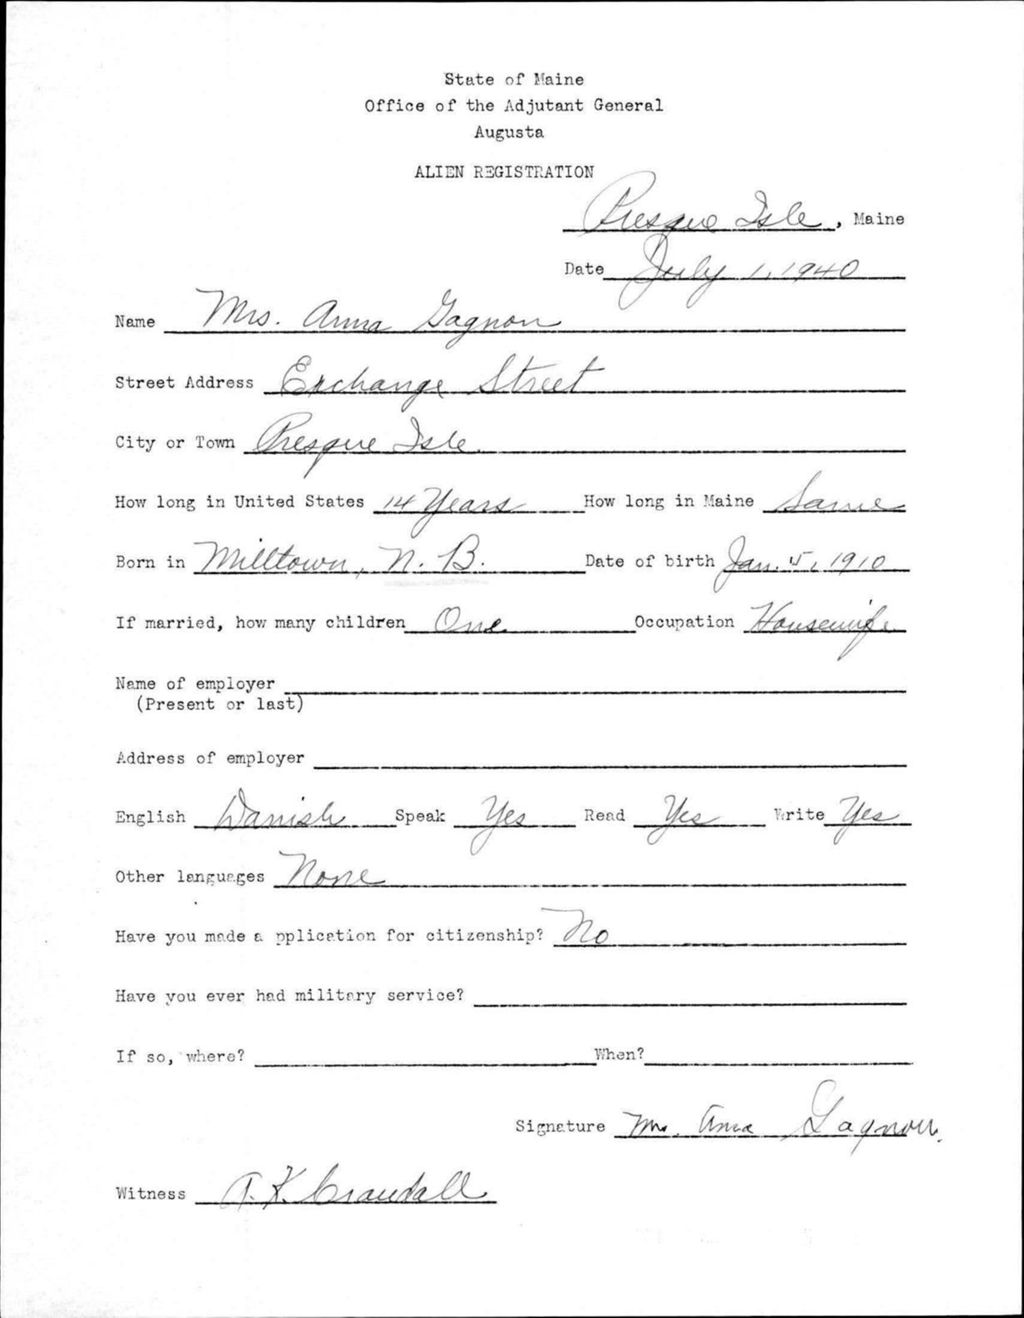 State of Maine
Office of the Adjutant General
Augusta
ALIEN REGISTRATION
Presque Isle, Maine
Date July 1, 1940
Name Mrs. Anna Gagnon
Street Address Exchange Street
City or Town Presque Isle
How long in United States 14 Years How long in Maine Same
Born in Milltown, N. B. Date of birth Jan. 5, 1910
If married, how many children One Occupation Housewife
Name of employer
(Present or last)
Address of employer
English Danish Speak Yes Read Yes Write Yes
Other languages None
Have you made a pplication for citizenship? No
Have you ever had military service?
If so, where? When?
Signature Mrs. Anna Gagnon
Witness T. K. Crandall